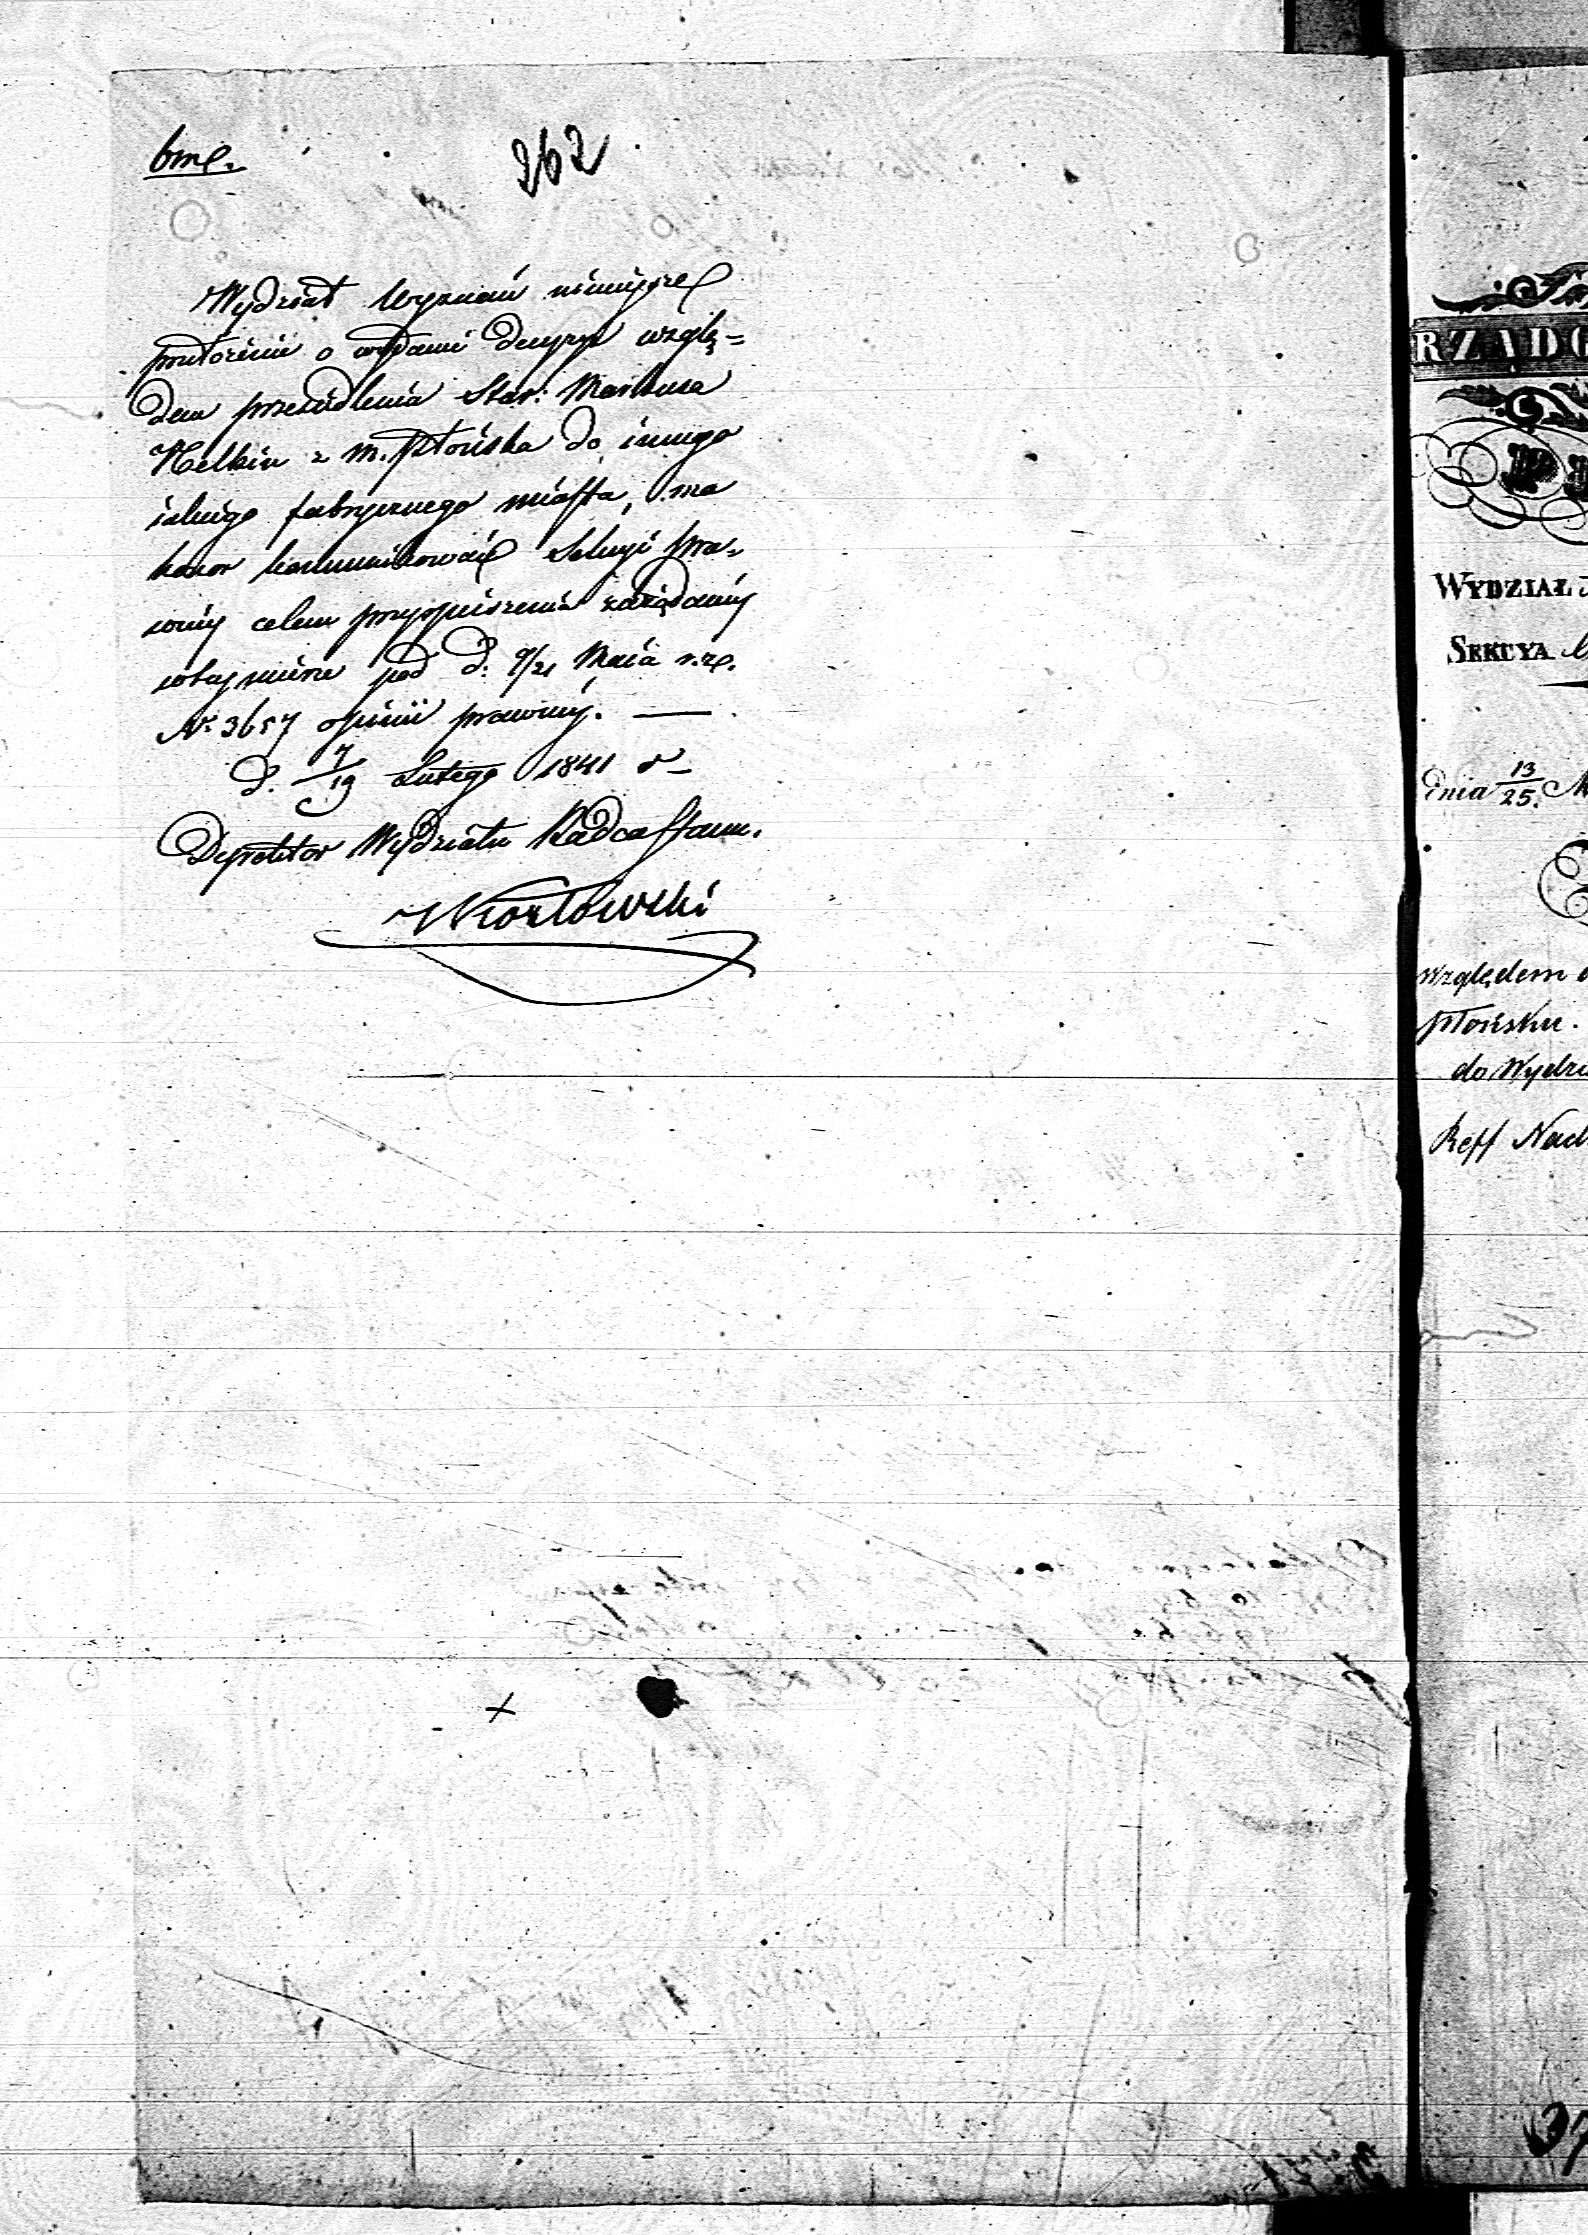 bmc.
262
Wydział Wyznań ninieysze
przełożenie o wydanie decyzyi wzglę=
dem przesiedlenia Star: Markusa
Helkin z m. Płońska do innego
iakiego fabrycznego miasta, ma
honor kommunikować Sekcyi Pra=
wney celem przyspieszenia zażądaney
w tey mierze pod d. 9/21 Maia r. z.
Nr 3657 opinii prawney. —
d. 7/19 Lutego 1841 r
Expeditor Wydziału Radca Stanu.
Kozłowski
RZĄD G
WYDZIAŁ
SEKCYA
dnia 13/25. M
względem
Płońsku.
do Wydzi
Reff Nad
37